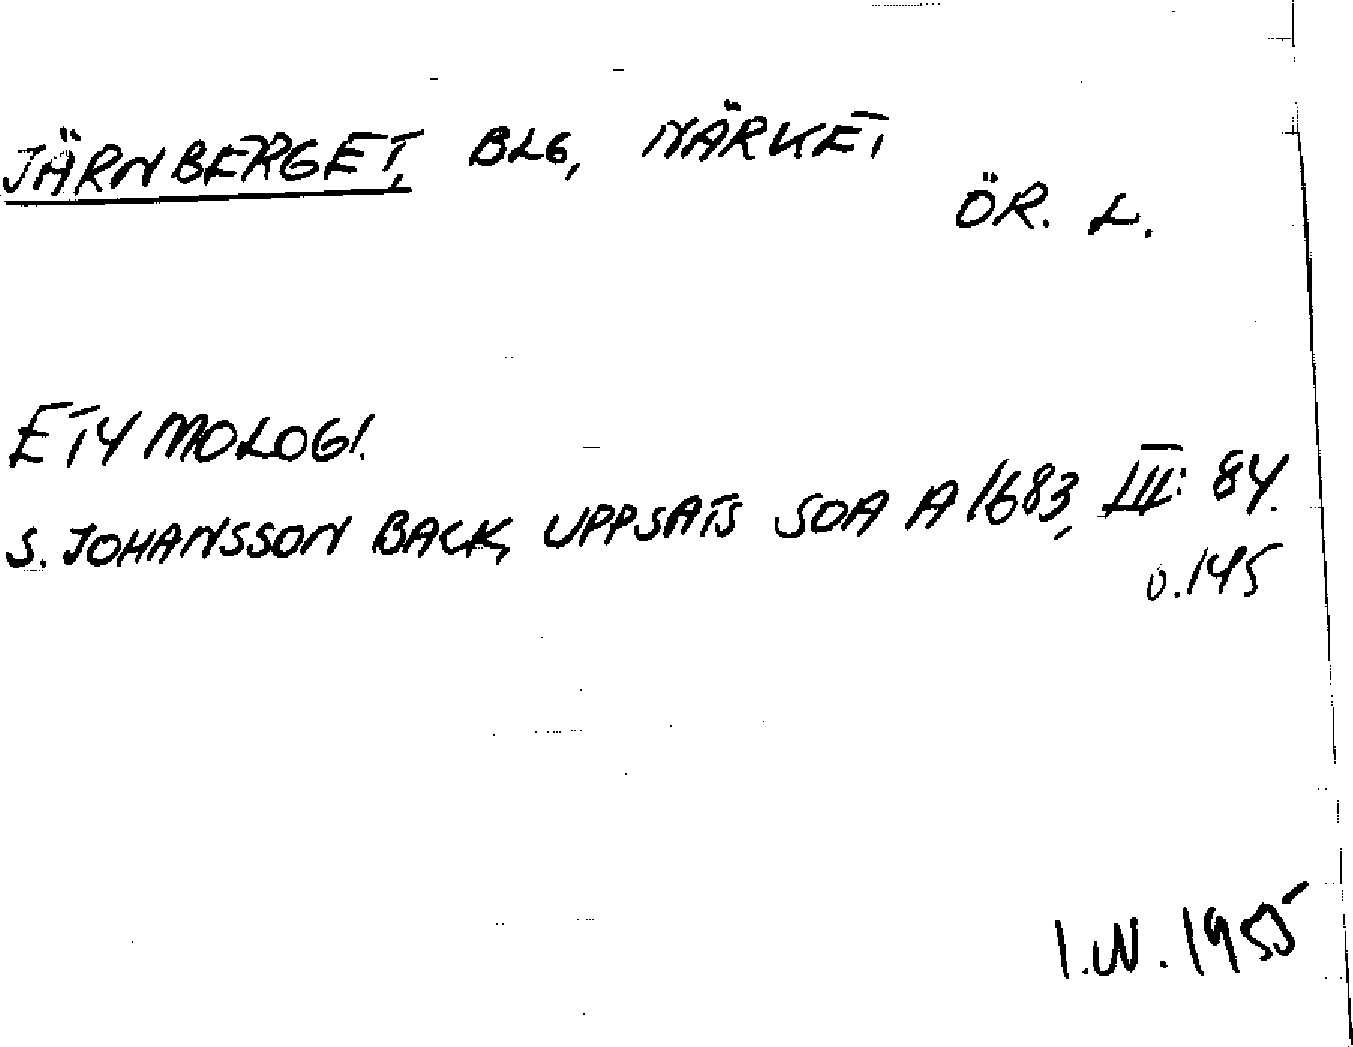 JÄRNBERGET, BLG, NÄRKET
ÖR. L.
ETYMOLOGI.
S. JOHANSSON BACK, UPPSATS SOA A 1683, III: 84.
o. 145
I.W. 1955